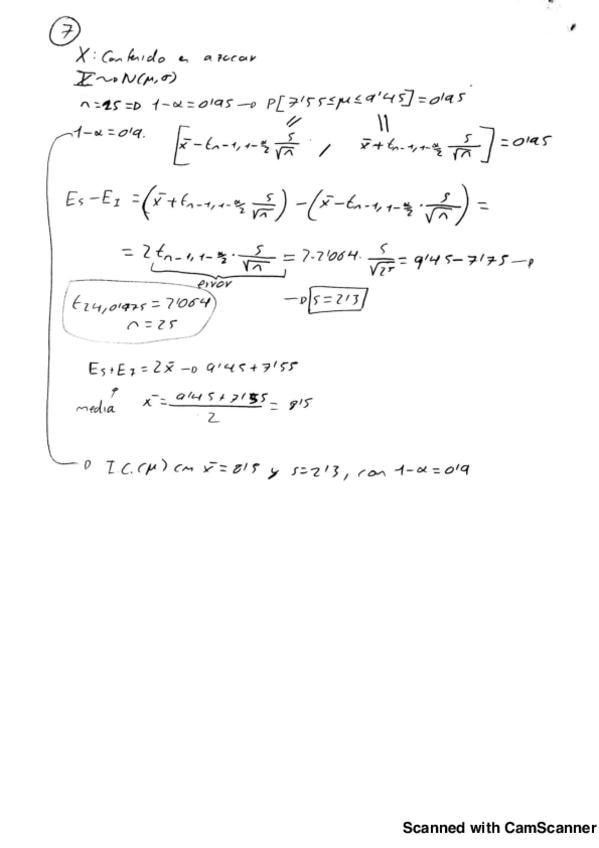 7
X: Contenido en azúcar
X ~> N(μ,σ)
n=25 => 1-α=0'95 -> P[7'55≤μ≤9'45]=0'95
1-α=0'9. [x̄-t_{n-1,1-α/2} s/√n , x̄+t_{n-1,1-α/2} s/√n]=0'95
E_S-E_I =(x̄+t_{n-1,1-α/2} s/√n)-(x̄-t_{n-1,1-α/2}·s/√n)=
= 2t_{n-1,1-α/2}·s/√n = 2·2'064·s/√25 = 9'45-7'75 ->
error
t_{24,0'975}=2'064
n=25
-> s=2'3
E_S+E_I=2x̄ -> 9'45+7'55
media x̄=(9'45+7'55)/2=8'5
-> I.C.(μ) con x̄=8'5 y s=2'3, con 1-α=0'9
Scanned with CamScanner